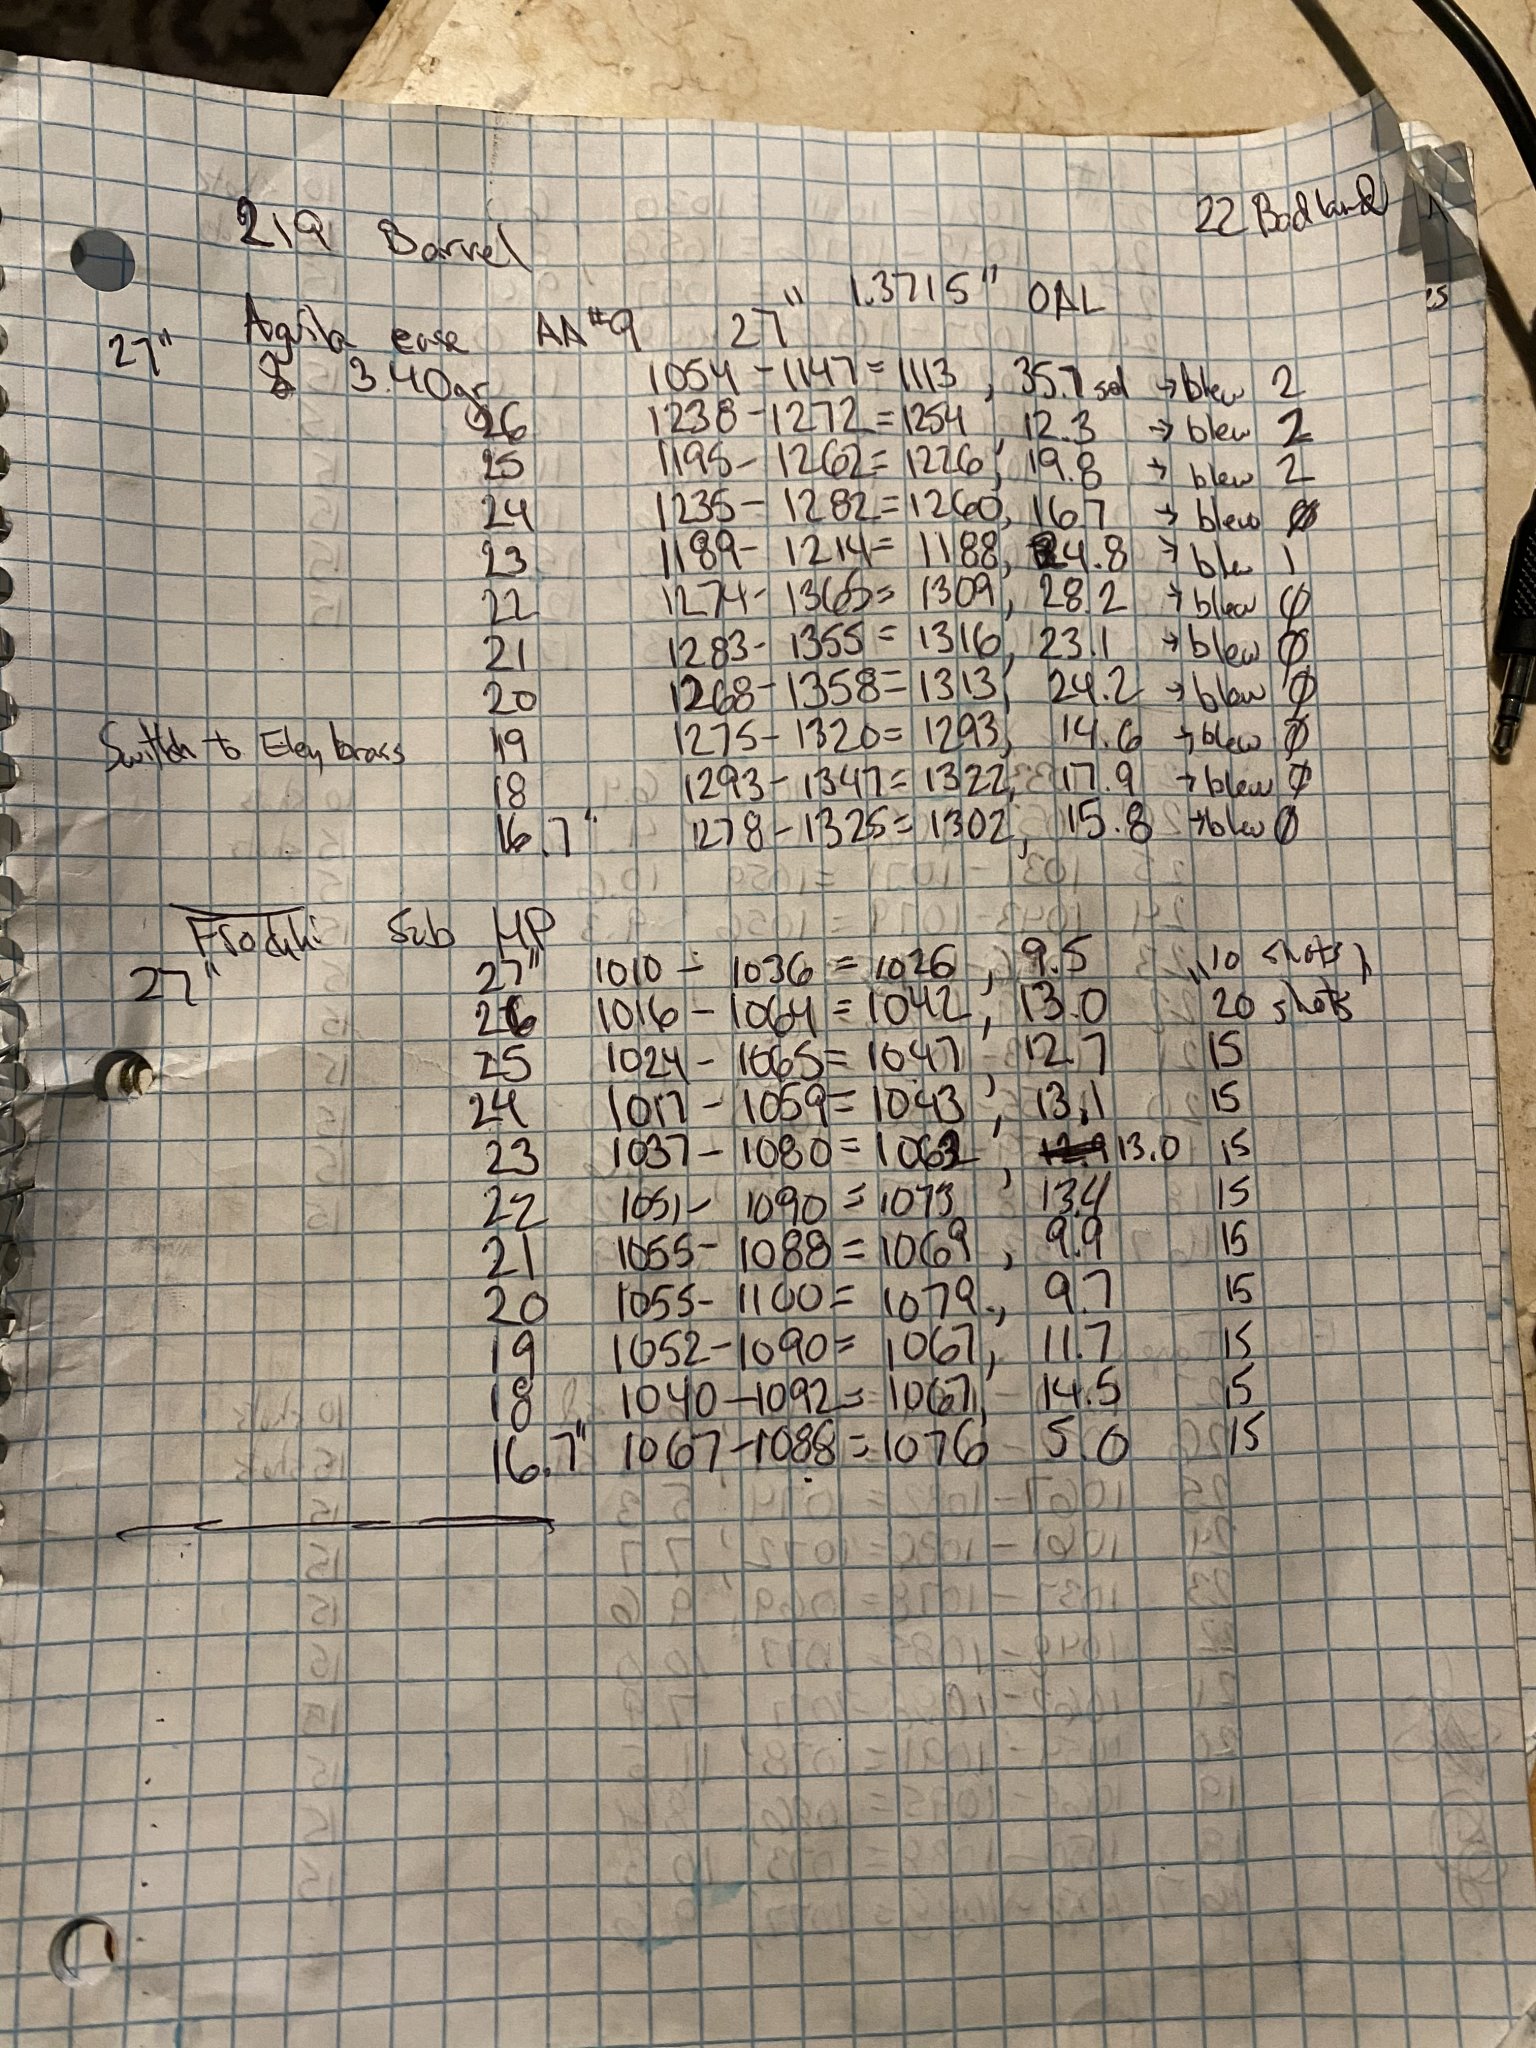 22 Badland
219 Barrel
27" Aguila case AA#9 27" 1.3715" OAL
3.40gr 1054-1147=1113, 35.7 sd → blew 2
26 1238-1272=1254 12.3 → blew 2
25 1195-1262=1226, 19.8 → blew 2
24 1235-1282=1260, 16.7 → blew 0
23 1189-1214=1188, 24.8 → blew 1
22 1274-1365=1309, 28.2 → blew 0
21 1283-1355=1316, 23.1 → blew 0
20 1268-1358=1313, 24.2 → blew 0
Switch to Eley brass 19 1275-1320=1293, 14.6 → blew 0
18 1293-1347=1322, 17.9 → blew 0
16.7" 1278-1325=1302, 15.8 → blew 0
Sub HP
27" 27" 1010-1036=1026, 9.5 10 shots
26 1016-1064=1042, 13.0 20 shots
25 1024-1065=1047, 12.7 15
24 1017-1059=1043, 13.1 15
23 1037-1080=1062, 13.0 15
22 1051-1090=1073 13.4 15
21 1055-1088=1069, 9.9 15
20 1055-1100=1079, 9.7 15
19 1052-1090=1067, 11.7 15
18 1040-1092=1067, 14.5 15
16.7" 1067-1088=1076 5.0 15